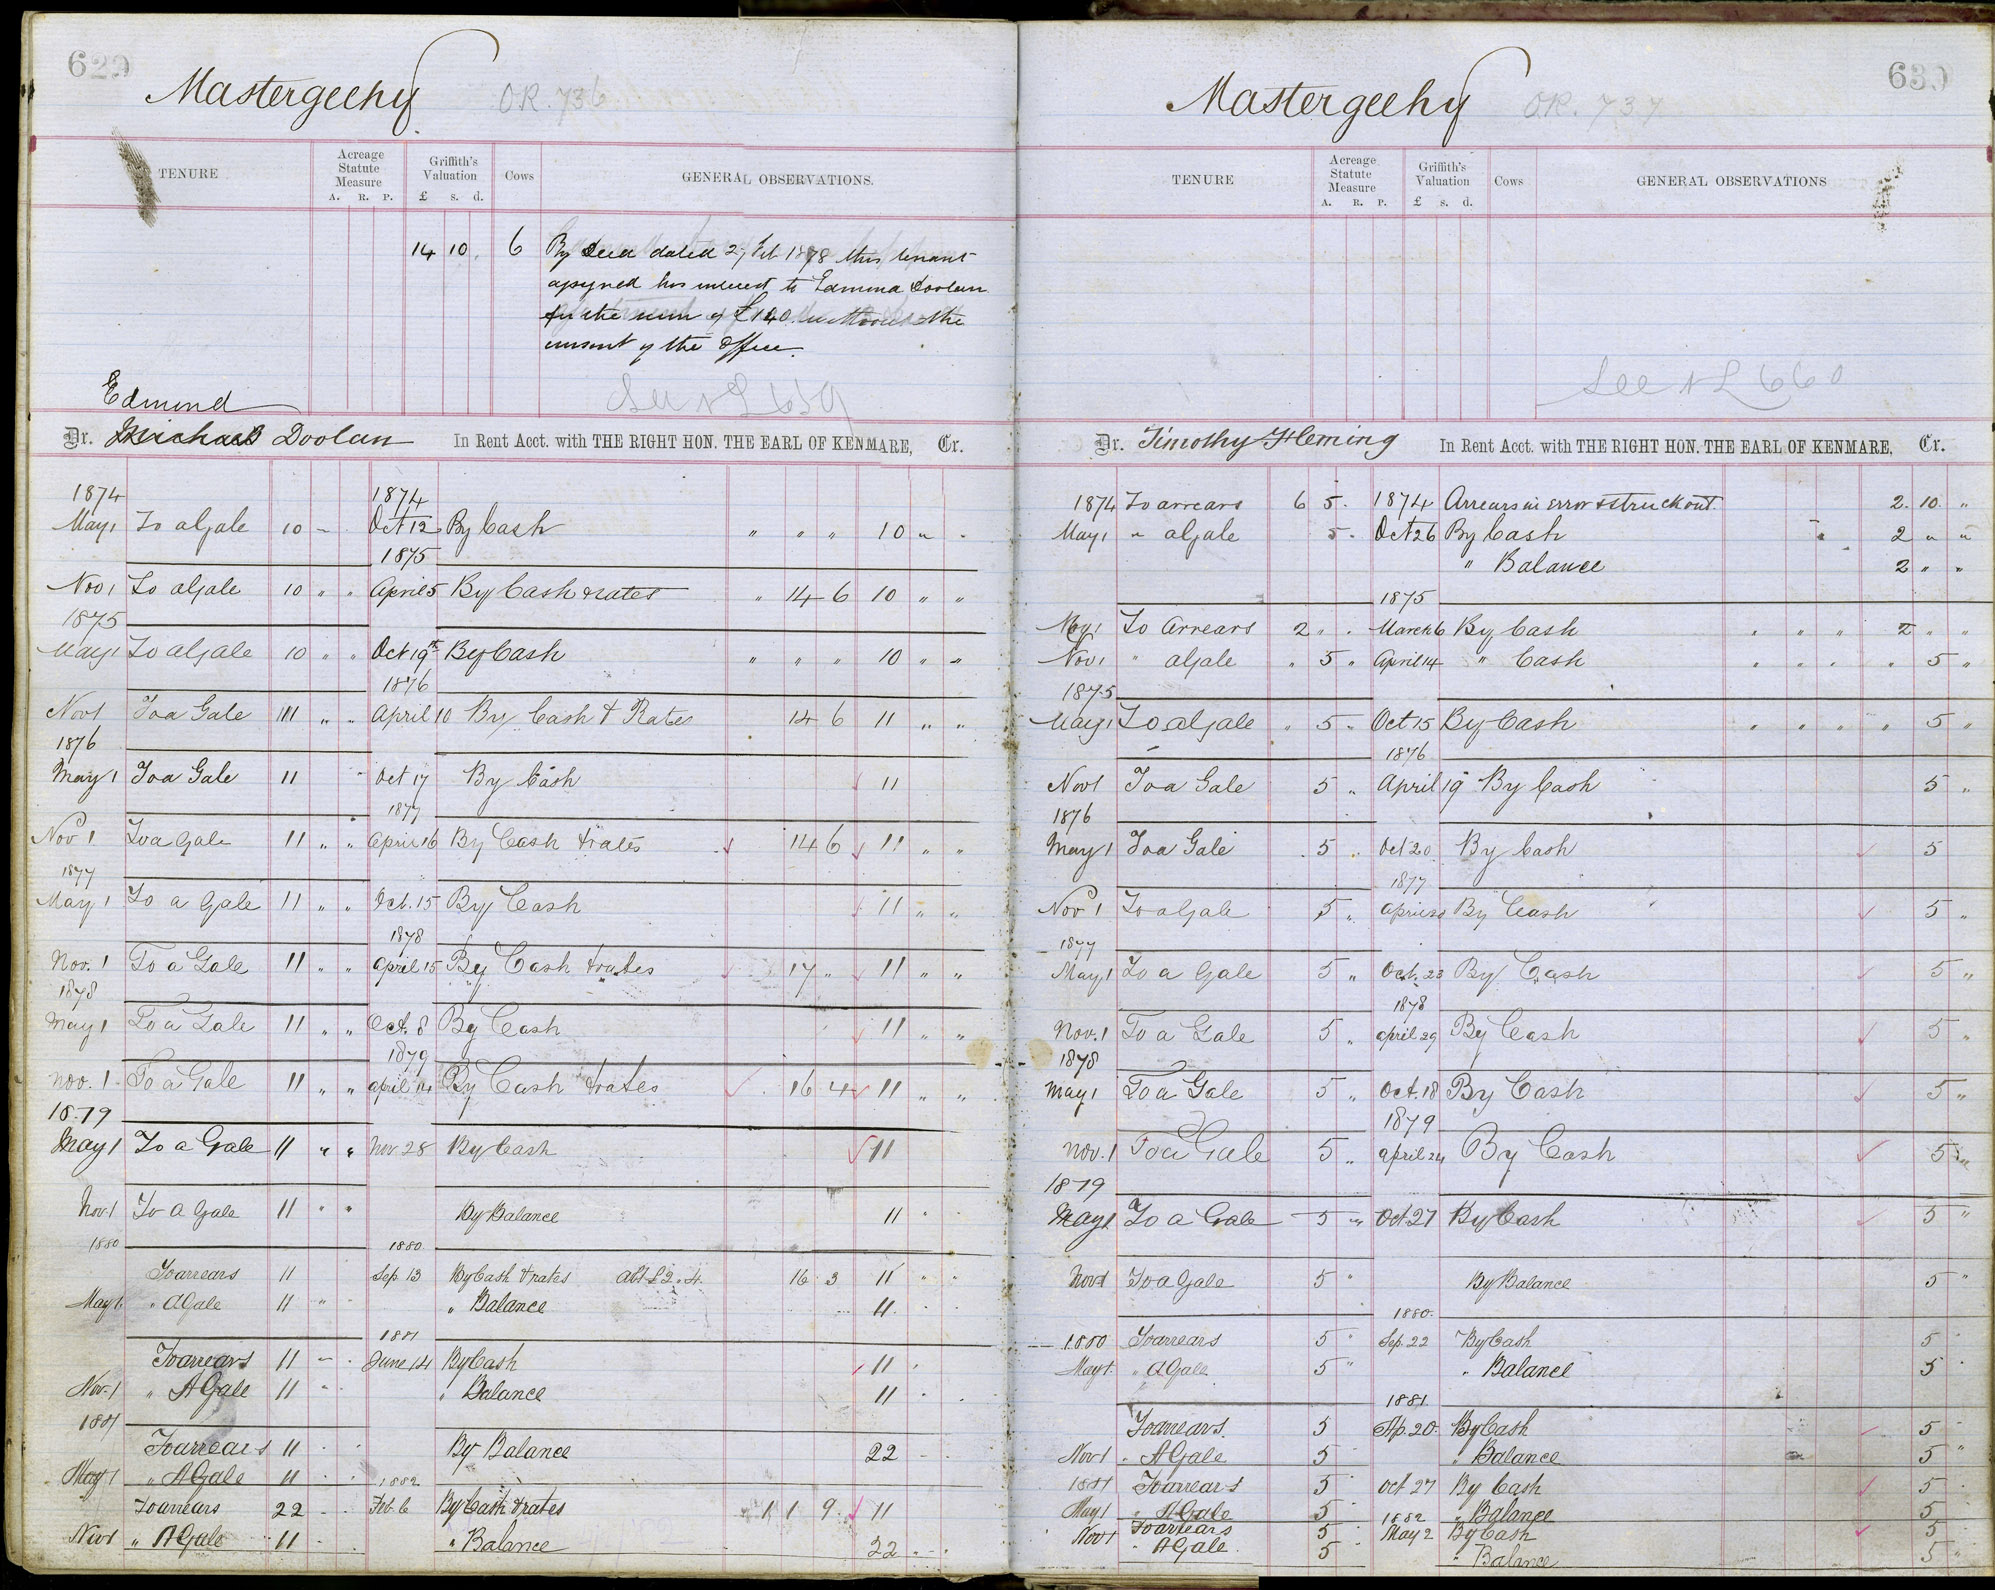 629
Mastergeehy OR. 736
TENURE Acreage Statute Measure A. R. P. Griffith's Valuation £ s. d. Cows GENERAL OBSERVATIONS.
14 10 6 By deed dated 27 Feb 1878 this tenant
assigned his interest to Edmund Doolan
for the sum of £140 without the
consent of the Office.
See NL 659
Edmund
Dr. Michael Doolan In Rent Acct. with THE RIGHT HON. THE EARL OF KENMARE, Cr.
1874 1874
May 1 To a Gale 10 - Oct 12 By Cash " " " 10 " "
1875
Nov 1 To a Gale 10 " " April 5 By Cash & rates " 14 6 10 " "
1875
May 1 To a Gale 10 " " Oct 19th By Cash " " " 10 " "
1876
Nov 1 To a Gale 11 " " April 10 By Cash & Rates 14 6 11 " "
1876
May 1 To a Gale 11 Oct 17 By Cash 11
1877
Nov 1 To a Gale 11 " " April 16 By Cash & rates 14 6 11 " "
1877
May 1 To a Gale 11 " " Oct. 15 By Cash 11 " "
1878
Nov. 1 To a Gale 11 " " April 15 By Cash & rates 17 " 11 " "
1878
May 1 To a Gale 11 " " Oct. 8 By Cash 11 " "
1879
Nov. 1 To a Gale 11 " " April 14 By Cash & rates 16 4 11 " "
1879
May 1 To a Gale 11 " " Nov 28 By Cash 11
Nov 1 To a Gale 11 " " By Balance 11 "
1880 1880
To arrears 11 Sep 13 By Cash & rates Abt £2.4. 16 3 11 " "
May 1. " A Gale 11 " " Balance 11
1881
To arrears 11 June 14 By Cash 11
Nov. 1 " A Gale 11 " Balance 11
1881
To arrears 11 By Balance 22
May 1 " A Gale 11 1882
To arrears 22 Feb. 6 By Cash & rates 1 1 9 11
Nov 1 " A Gale 11 " Balance 22
630
Mastergeehy OR. 737
TENURE Acreage Statute Measure A. R. P. Griffith's Valuation £ s. d. Cows GENERAL OBSERVATIONS
See NL 660
Dr. Timothy Fleming In Rent Acct. with THE RIGHT HON. THE EARL OF KENMARE, Cr.
1874 To arrears 6 5 1874 Arrears in error & struck out. 2. 10. "
May 1 " a Gale 5 Oct 26 By Cash 2 " "
" Balance 2 " "
1875
Nov 1 To Arrears 2 " March 6 By Cash " " " 2 " "
Nov 1 " a Gale " 5 " April 14 " Cash " " " " 5 "
1875
May 1 To a Gale " 5 Oct 15 By Cash " " " " 5 "
1876
Nov 1 To a Gale 5 " April 19 By Cash 5 "
1876
May 1 To a Gale 5 Oct 20 By Cash 5
1877
Nov 1 To a Gale 5 " April By Cash 5 "
1877
May 1 To a Gale 5 " Oct. 23 By Cash 5 "
1878
Nov. 1 To a Gale 5 " April 29 By Cash 5 "
1878
May 1 To a Gale 5 " Oct. 18 By Cash 5 "
1879
Nov. 1 To a Gale 5 " April 24 By Cash 5 "
1879
May 1 To a Gale 5 " Oct 27 By Cash 5 "
Nov 1 To a Gale 5 " By Balance 5 "
1880.
1880 To arrears 5 " Sep. 22 By Cash 5
May 1. " A Gale 5 " " Balance 5
1881
To arrears. 5 Ap. 20. By Cash 5
Nov 1 " A Gale 5 " Balance 5 "
1881 To arrears 5 Oct 27 By Cash 5
May 1 " A Gale 5 1882 " Balance 5
Nov 1 To arrears 5 May 2 By Cash 5
" A Gale. 5 " Balance 5